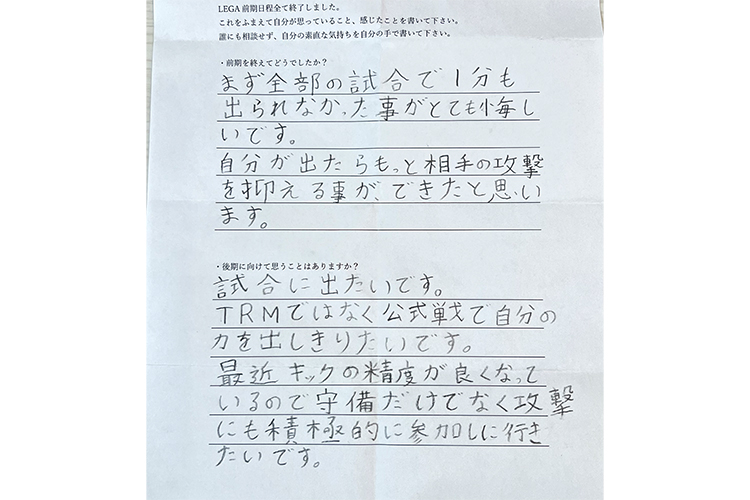 LEGA前期日程全て終了しました。
これをふまえて自分が思っていること、感じたことを書いて下さい。
誰にも相談せず、自分の素直な気持ちを自分の手で書いて下さい。
・前期を終えてどうでしたか？
まず全部の試合で1分も
出られなかった事がとても悔し
いです。
自分が出たらもっと相手の攻撃
を抑える事が、できたと思い
ます。
・後期に向けて思うことはありますか？
試合に出たいです。
TRMではなく公式戦で自分の
力を出しきりたいです。
最近キックの精度が良くなって
いるので守備だけでなく攻撃
にも積極的に参加しに行き
たいです。